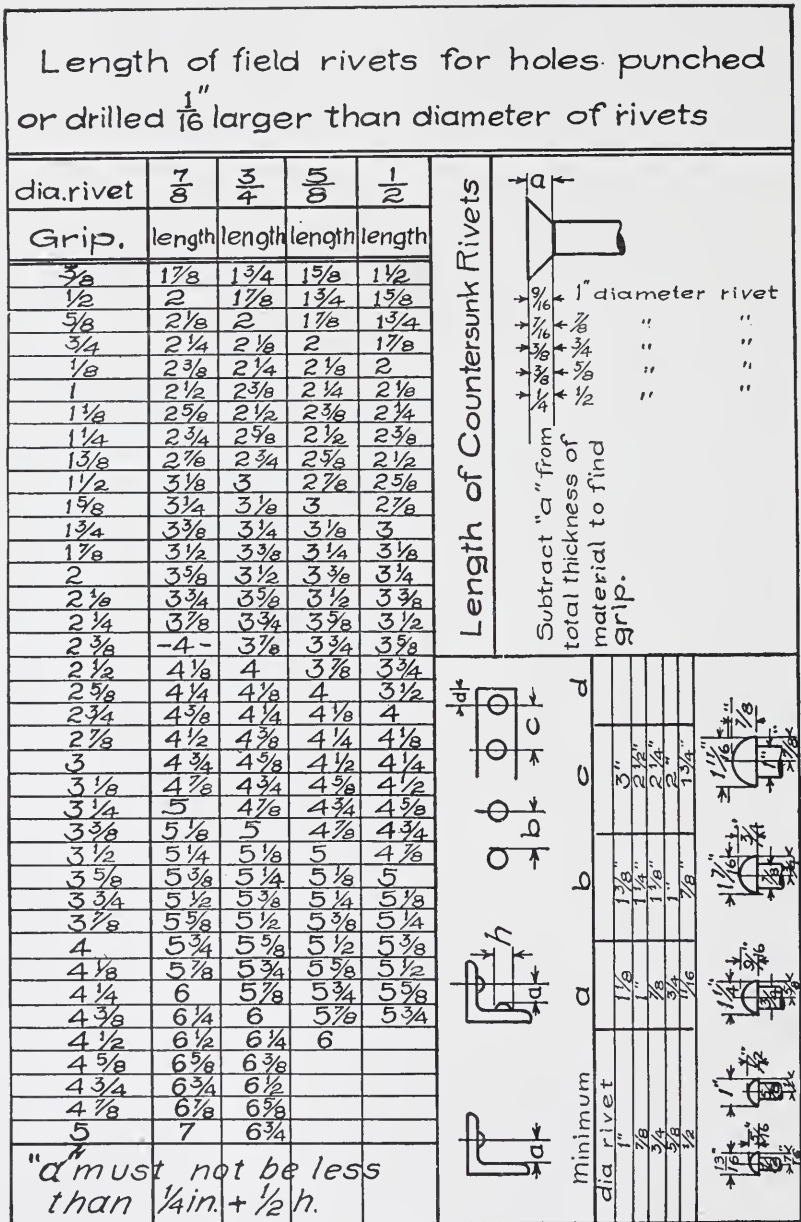 Length of field rivets for holes punched
or drilled 1/16" larger than diameter of rivets
dia.rivet 7/8 3/4 5/8 1/2
Grip. length length length length
3/8 1 7/8 1 3/4 1 5/8 1 1/2
1/2 2 1 7/8 1 3/4 1 5/8
5/8 2 1/8 2 1 7/8 1 3/4
3/4 2 1/4 2 1/8 2 1 7/8
1/8 2 3/8 2 1/4 2 1/8 2
1 2 1/2 2 3/8 2 1/4 2 1/8
1 1/8 2 5/8 2 1/2 2 3/8 2 1/4
1 1/4 2 3/4 2 5/8 2 1/2 2 3/8
1 3/8 2 7/8 2 3/4 2 5/8 2 1/2
1 1/2 3 1/8 3 2 7/8 2 5/8
1 5/8 3 1/4 3 1/8 3 2 7/8
1 3/4 3 3/8 3 1/4 3 1/8 3
1 7/8 3 1/2 3 3/8 3 1/4 3 1/8
2 3 5/8 3 1/2 3 3/8 3 1/4
2 1/8 3 3/4 3 5/8 3 1/2 3 3/8
2 1/4 3 7/8 3 3/4 3 5/8 3 1/2
2 3/8 -4- 3 7/8 3 3/4 3 5/8
2 1/2 4 1/8 4 3 7/8 3 3/4
2 5/8 4 1/4 4 1/8 4 3 1/2
2 3/4 4 3/8 4 1/4 4 1/8 4
2 7/8 4 1/2 4 3/8 4 1/4 4 1/8
3 4 3/4 4 5/8 4 1/2 4 1/4
3 1/8 4 7/8 4 3/4 4 5/8 4 1/2
3 1/4 5 4 7/8 4 3/4 4 5/8
3 3/8 5 1/8 5 4 7/8 4 3/4
3 1/2 5 1/4 5 1/8 5 4 7/8
3 5/8 5 3/8 5 1/4 5 1/8 5
3 3/4 5 1/2 5 3/8 5 1/4 5 1/8
3 7/8 5 5/8 5 1/2 5 3/8 5 1/4
4 5 3/4 5 5/8 5 1/2 5 3/8
4 1/8 5 7/8 5 3/4 5 5/8 5 1/2
4 1/4 6 5 7/8 5 3/4 5 5/8
4 3/8 6 1/4 6 5 7/8 5 3/4
4 1/2 6 1/2 6 1/4 6
4 5/8 6 5/8 6 3/8
4 3/4 6 3/4 6 1/2
4 7/8 6 7/8 6 5/8
5 7 6 3/4
"a" must not be less
than 1/4 in. + 1/2 h.
Length of Countersunk Rivets
a
9/16 1" diameter rivet
7/16 7/8 " "
3/8 3/4 " "
3/8 5/8 " "
1/4 1/2 " "
Subtract "a" from
total thickness of
material to find
grip.
a a h b c d
minimum a b c d
dia rivet
1" 1 1/8 1 3/8" 3"
7/8 1" 1 1/4" 2 1/2"
3/4 7/8 1 1/8" 2 1/4"
5/8 3/4 1" 2"
1/2 11/16 7/8" 1 3/4"
13/16" 5/16"
1" 1/2" 5/8
1 1/4" 9/16" 3/4 5/8
1 7/16" 3/4" 7/8
1 11/16" 7/8" 1" 7/8